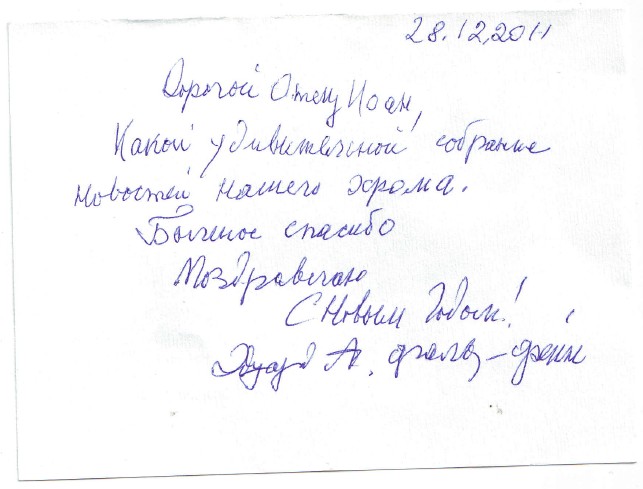 28.12.2011
Дорогой Отец Иоан,
Какой удивительной собрание
новостей нашего храма.
Большое спасибо
Поздравляю
С Новым Годом!
Эдуард А. фальц-фейн